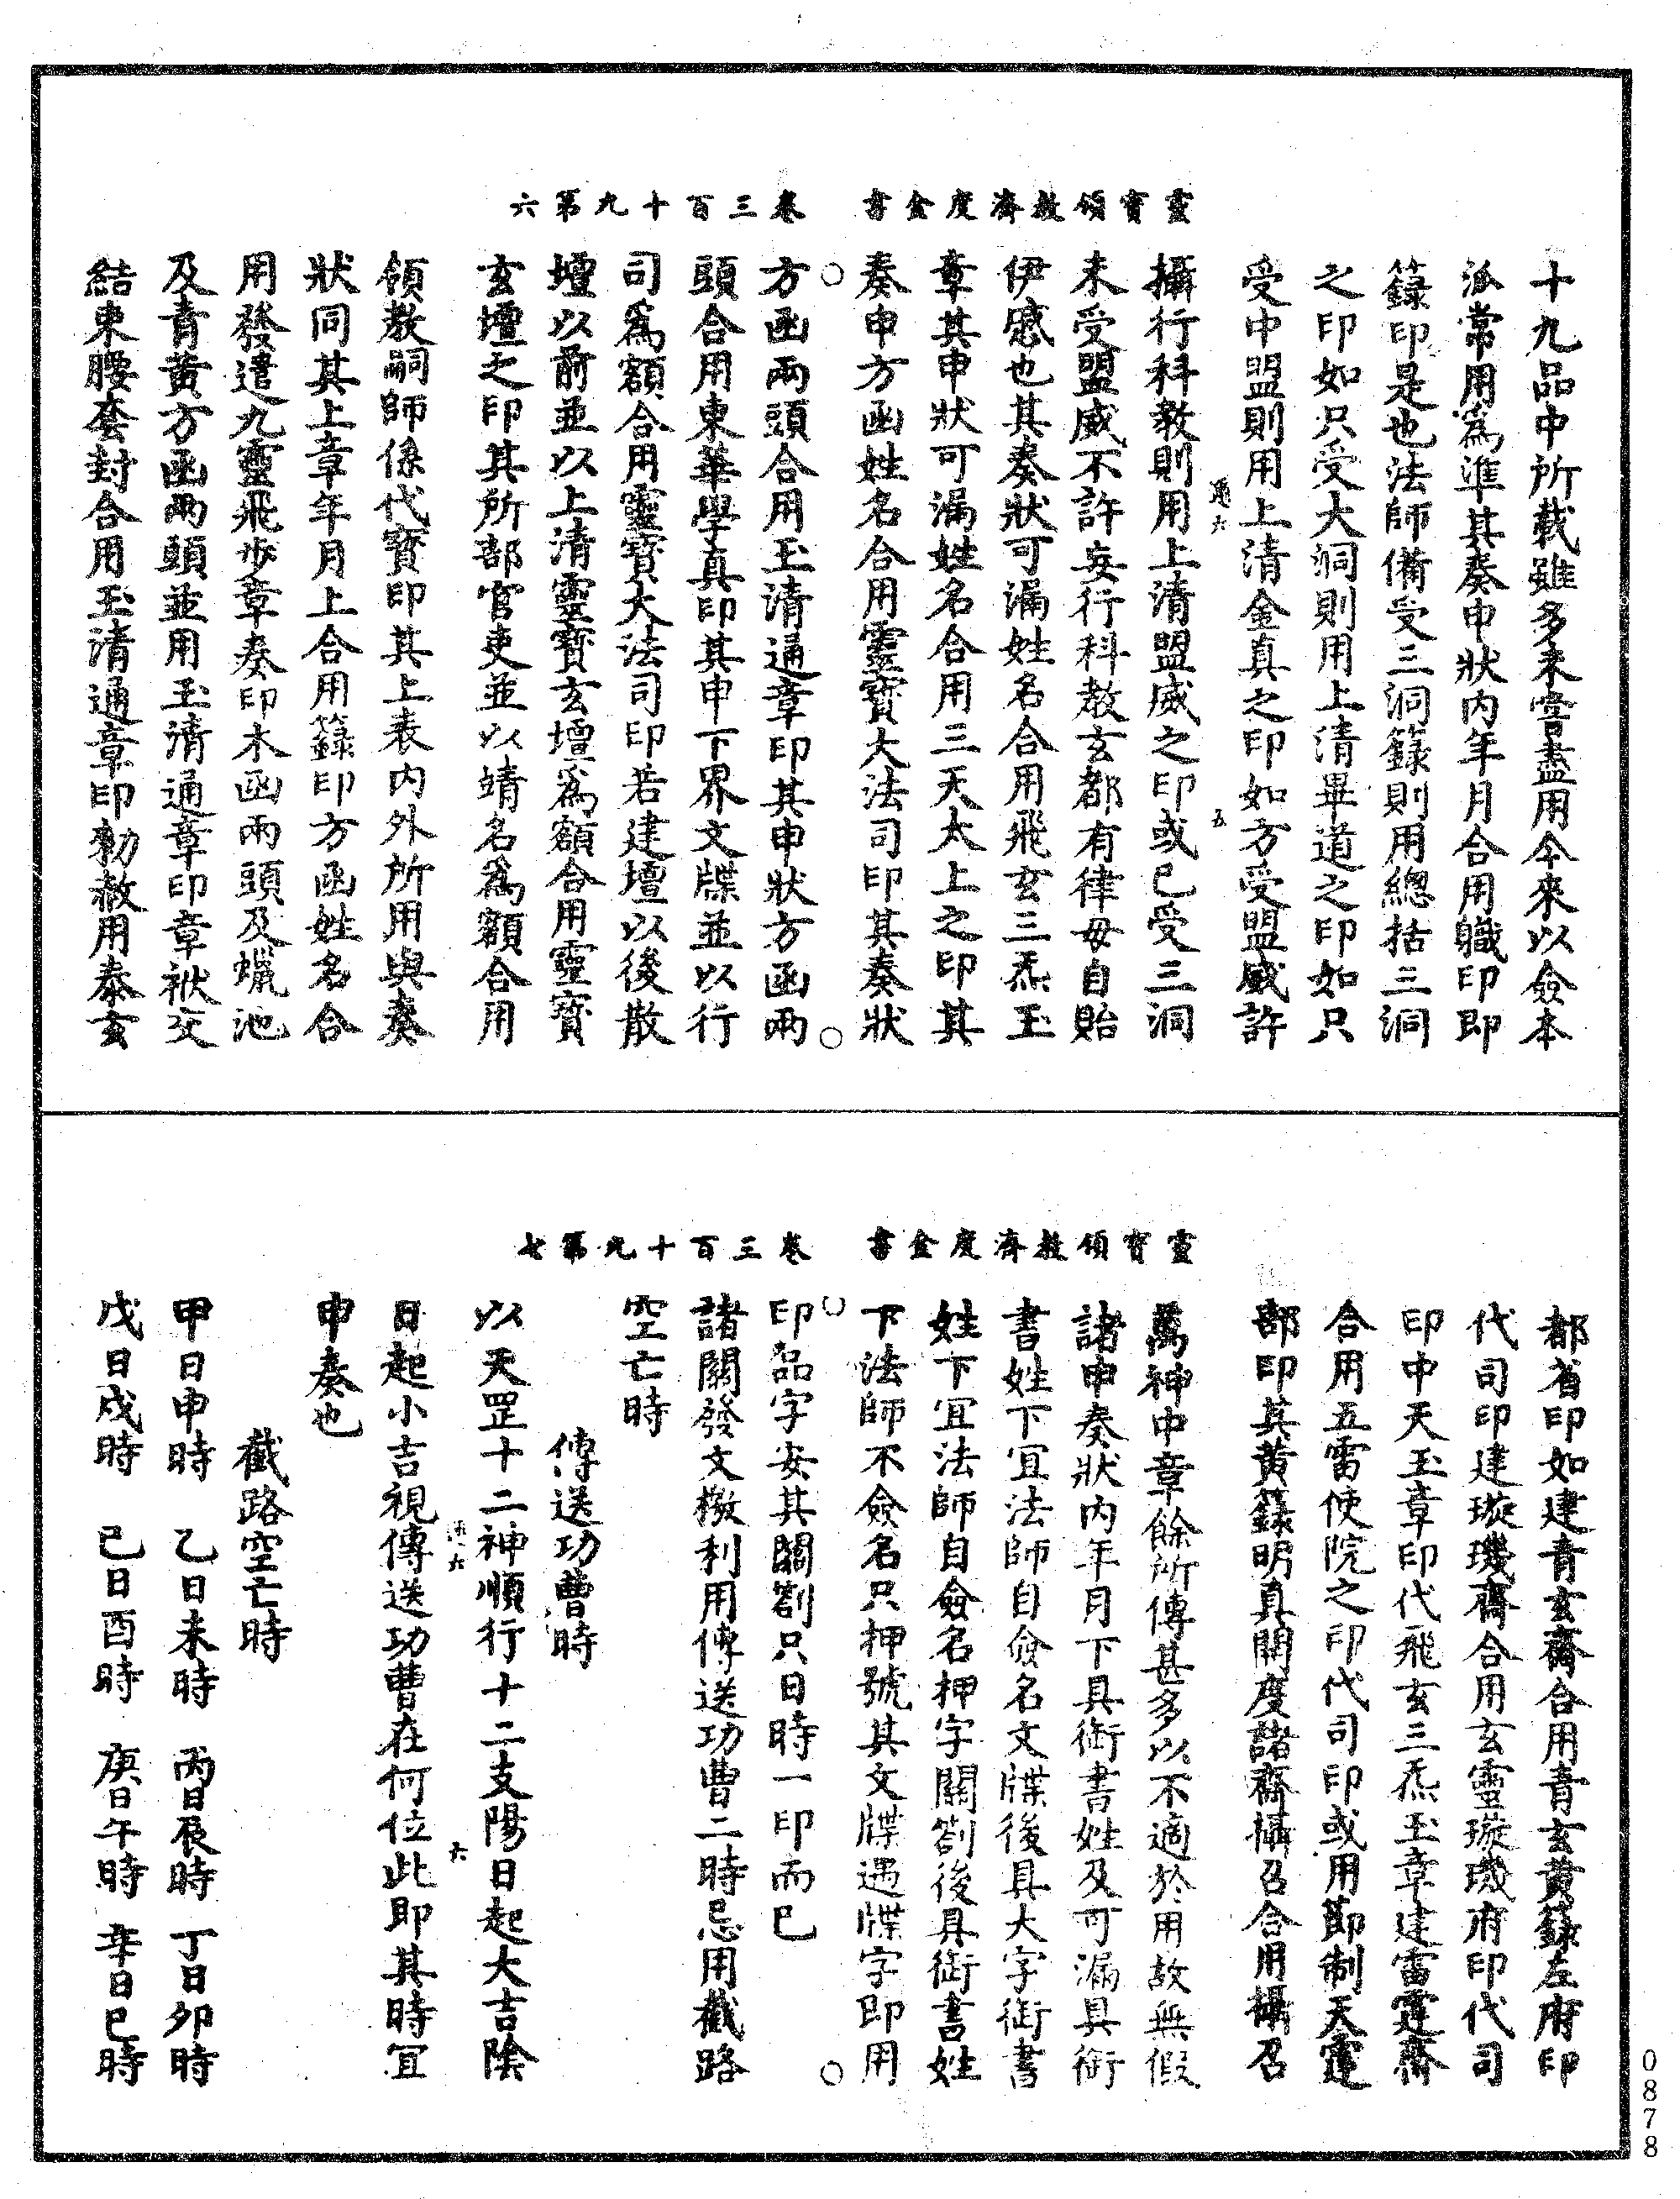 靈寶領教濟度金書 卷三百十九第六
十九品中所載雖多未嘗盡用今來以僉本
派常用為準其奏申狀內年月合用職印即
籙印是也法師備受三洞籙則用總括三洞
之印如只受大洞則用上清畢道之印如只
受中盟則用上清金真之印如方受盟威許
通六 五
攝行科教則用上清盟威之印或已受三洞
未受盟威不許妄行科教玄都有律毋自貽
伊慼也其奏狀可漏姓名合用飛玄三炁玉
章其申狀可漏姓名合用三天太上之印其
奏申方函姓名合用靈寶大法司印其奏狀
方函兩頭合用玉清通章印其申狀方函兩
頭合用東華學真印其申下界文牒並以行
司為額合用靈寶大法司印若建壇以後散
壇以前並以上清靈寶玄壇為額合用靈寶
玄壇之印其所部官吏並以靖名為額合用
領教嗣師係代寶印其上表內外所用與奏
狀同其上章年月上合用籙印方函姓名合
用發遣九靈飛步章奏印木函兩頭及蠟池
及青黃方函兩頭並用玉清通章印章袱交
結束腰套封合用玉清通章印勑赦用泰玄
靈寶領教濟度金書 卷三百十九第七
都省印如建青玄齋合用青玄黃籙左府印
代司印建璇璣齋合用玄靈璇璣府印代司
印中天玉章印代飛玄三炁玉章建雷霆齋
合用五雷使院之印代司印或用節制天霆
部印其黃籙明真開度諸齋攝召合用攝召
萬神中章餘所傳甚多以不適於用故無假
諸申奏狀內年月下具銜書姓及可漏具銜
書姓下宜法師自僉名文牒後具大字銜書
姓下宜法師自僉名押字關劄後具銜書姓
下法師不僉名只押號其文牒遇牒字即用
印品字安其關劄只日時一印而已
諸關發文檄利用傳送功曹二時忌用截路
空亡時
傳送功曹時
以天罡十二神順行十二支陽日起大吉陰
通六 六
日起小吉視傳送功曹在何位此即其時宜
申奏也
截路空亡時
甲日申時 乙日未時 丙日辰時 丁日卯時
戊日戌時 己日酉時 庚日午時 辛日巳時
0878